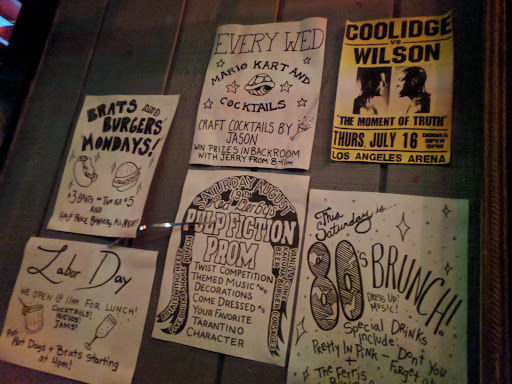 BRATS AND
BURGERS
MONDAYS!
$3 BRATS - TWO FOR $5
AND
HALF PRICE BURGERS, ALL NIGHT!
EVERY WED
MARIO KART AND
COCKTAILS
CRAFT COCKTAILS BY
JASON
WIN PRIZES IN BACKROOM
WITH JERRY FROM 8-11PM
COOLIDGE
VS
WILSON
"THE MOMENT OF TRUTH"
THURS. JULY 16 DOORS OPEN 8PM
LOS ANGELES ARENA
Labor Day
WE OPEN @ 11am FOR LUNCH!
COCKTAILS!
JAMS!
Hot Dogs + Brats Starting
at 4pm!
SATURDAY AUGUST
PULP FICTION
PROM
TWIST COMPETITION
THEMED MUSIC AND
DECORATIONS
COME DRESSED AS
YOUR FAVORITE
TARANTINO
CHARACTER
This
Saturday is...
80's BRUNCH!
DRESS UP!
MUSIC!
Special Drinks
Include:
Pretty In Pink - Don't You
+ Forget
The Ferris